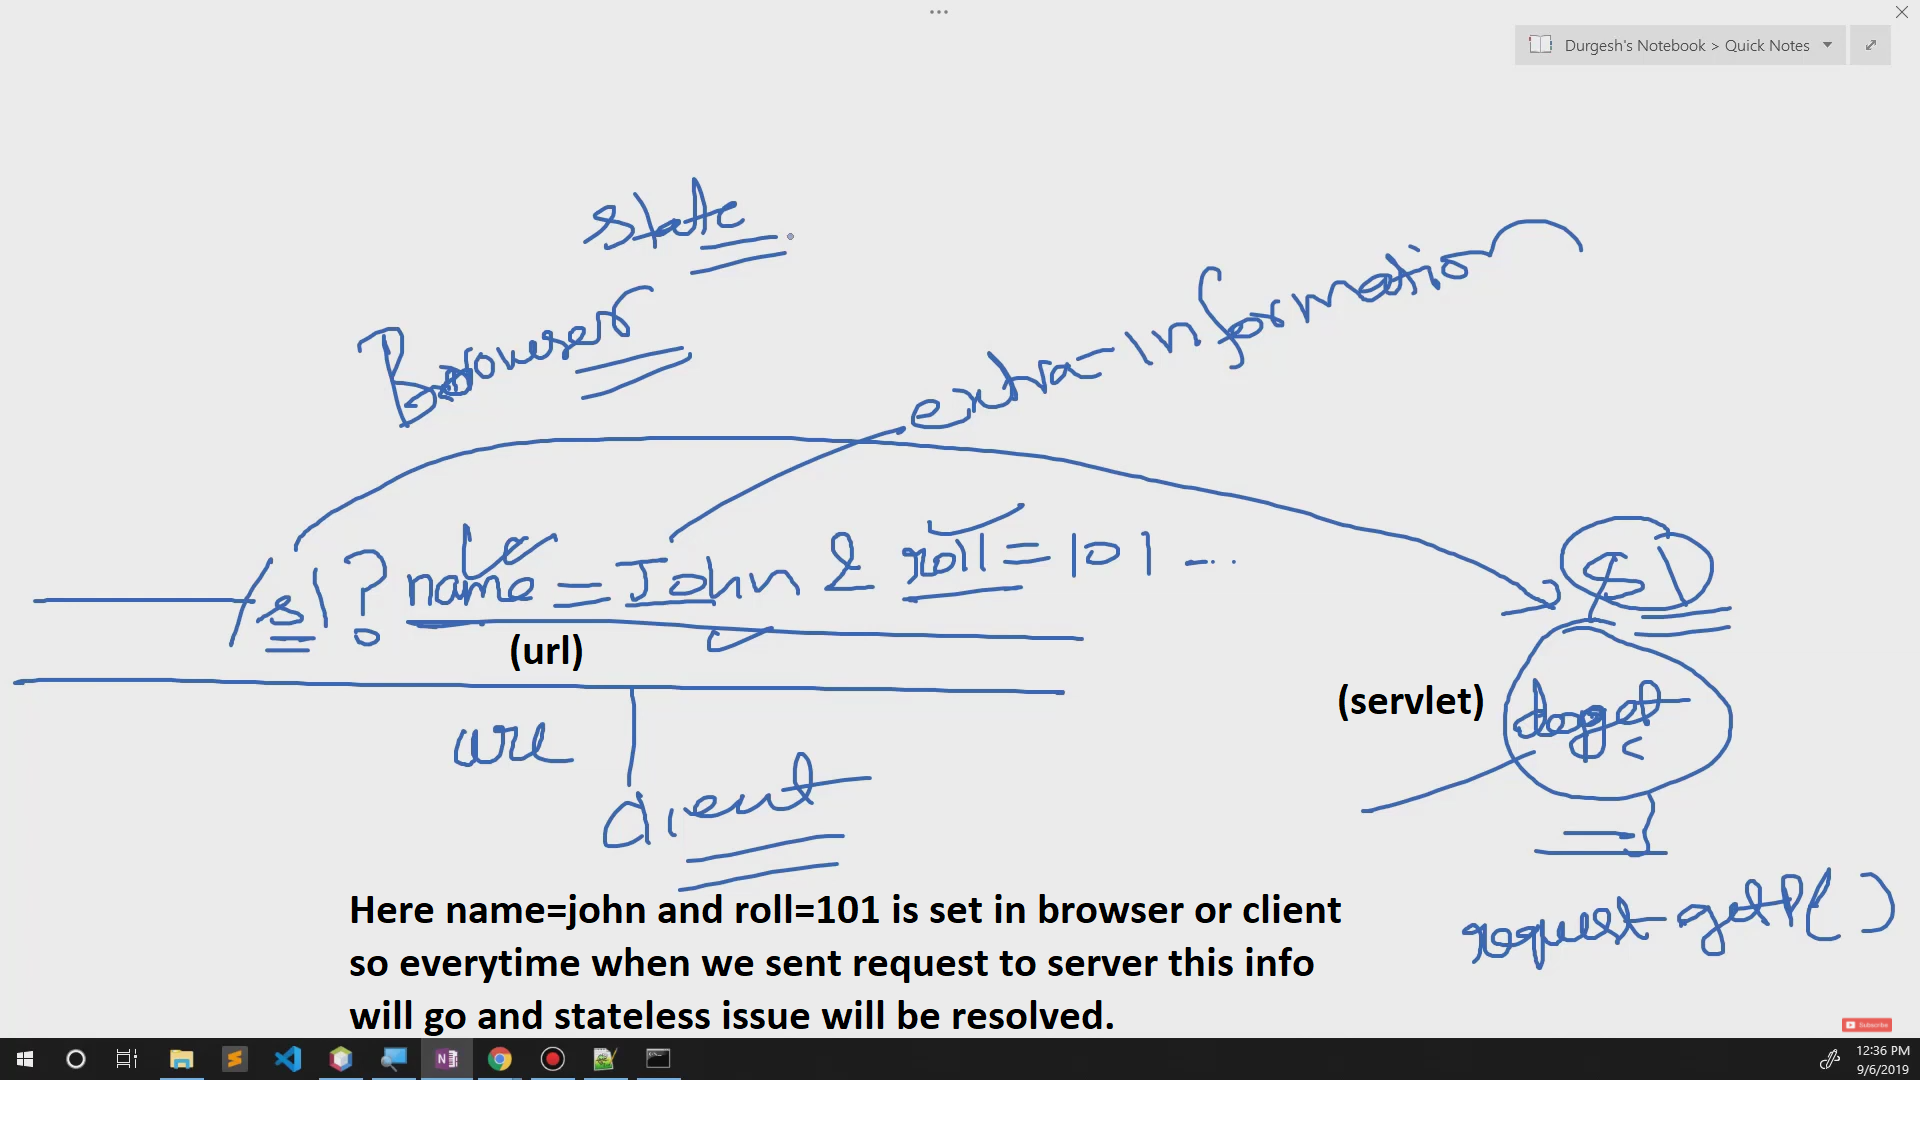 Durgesh's Notebook > Quick Notes
state
Browser
extra-information
/s1? name = John & roll = 101 ...
s1
(url)
(servlet)
doget
url
client
Here name=john and roll=101 is set in browser or client
so everytime when we sent request to server this info
will go and stateless issue will be resolved.
request.getP( )
Subscribe
12:36 PM
9/6/2019